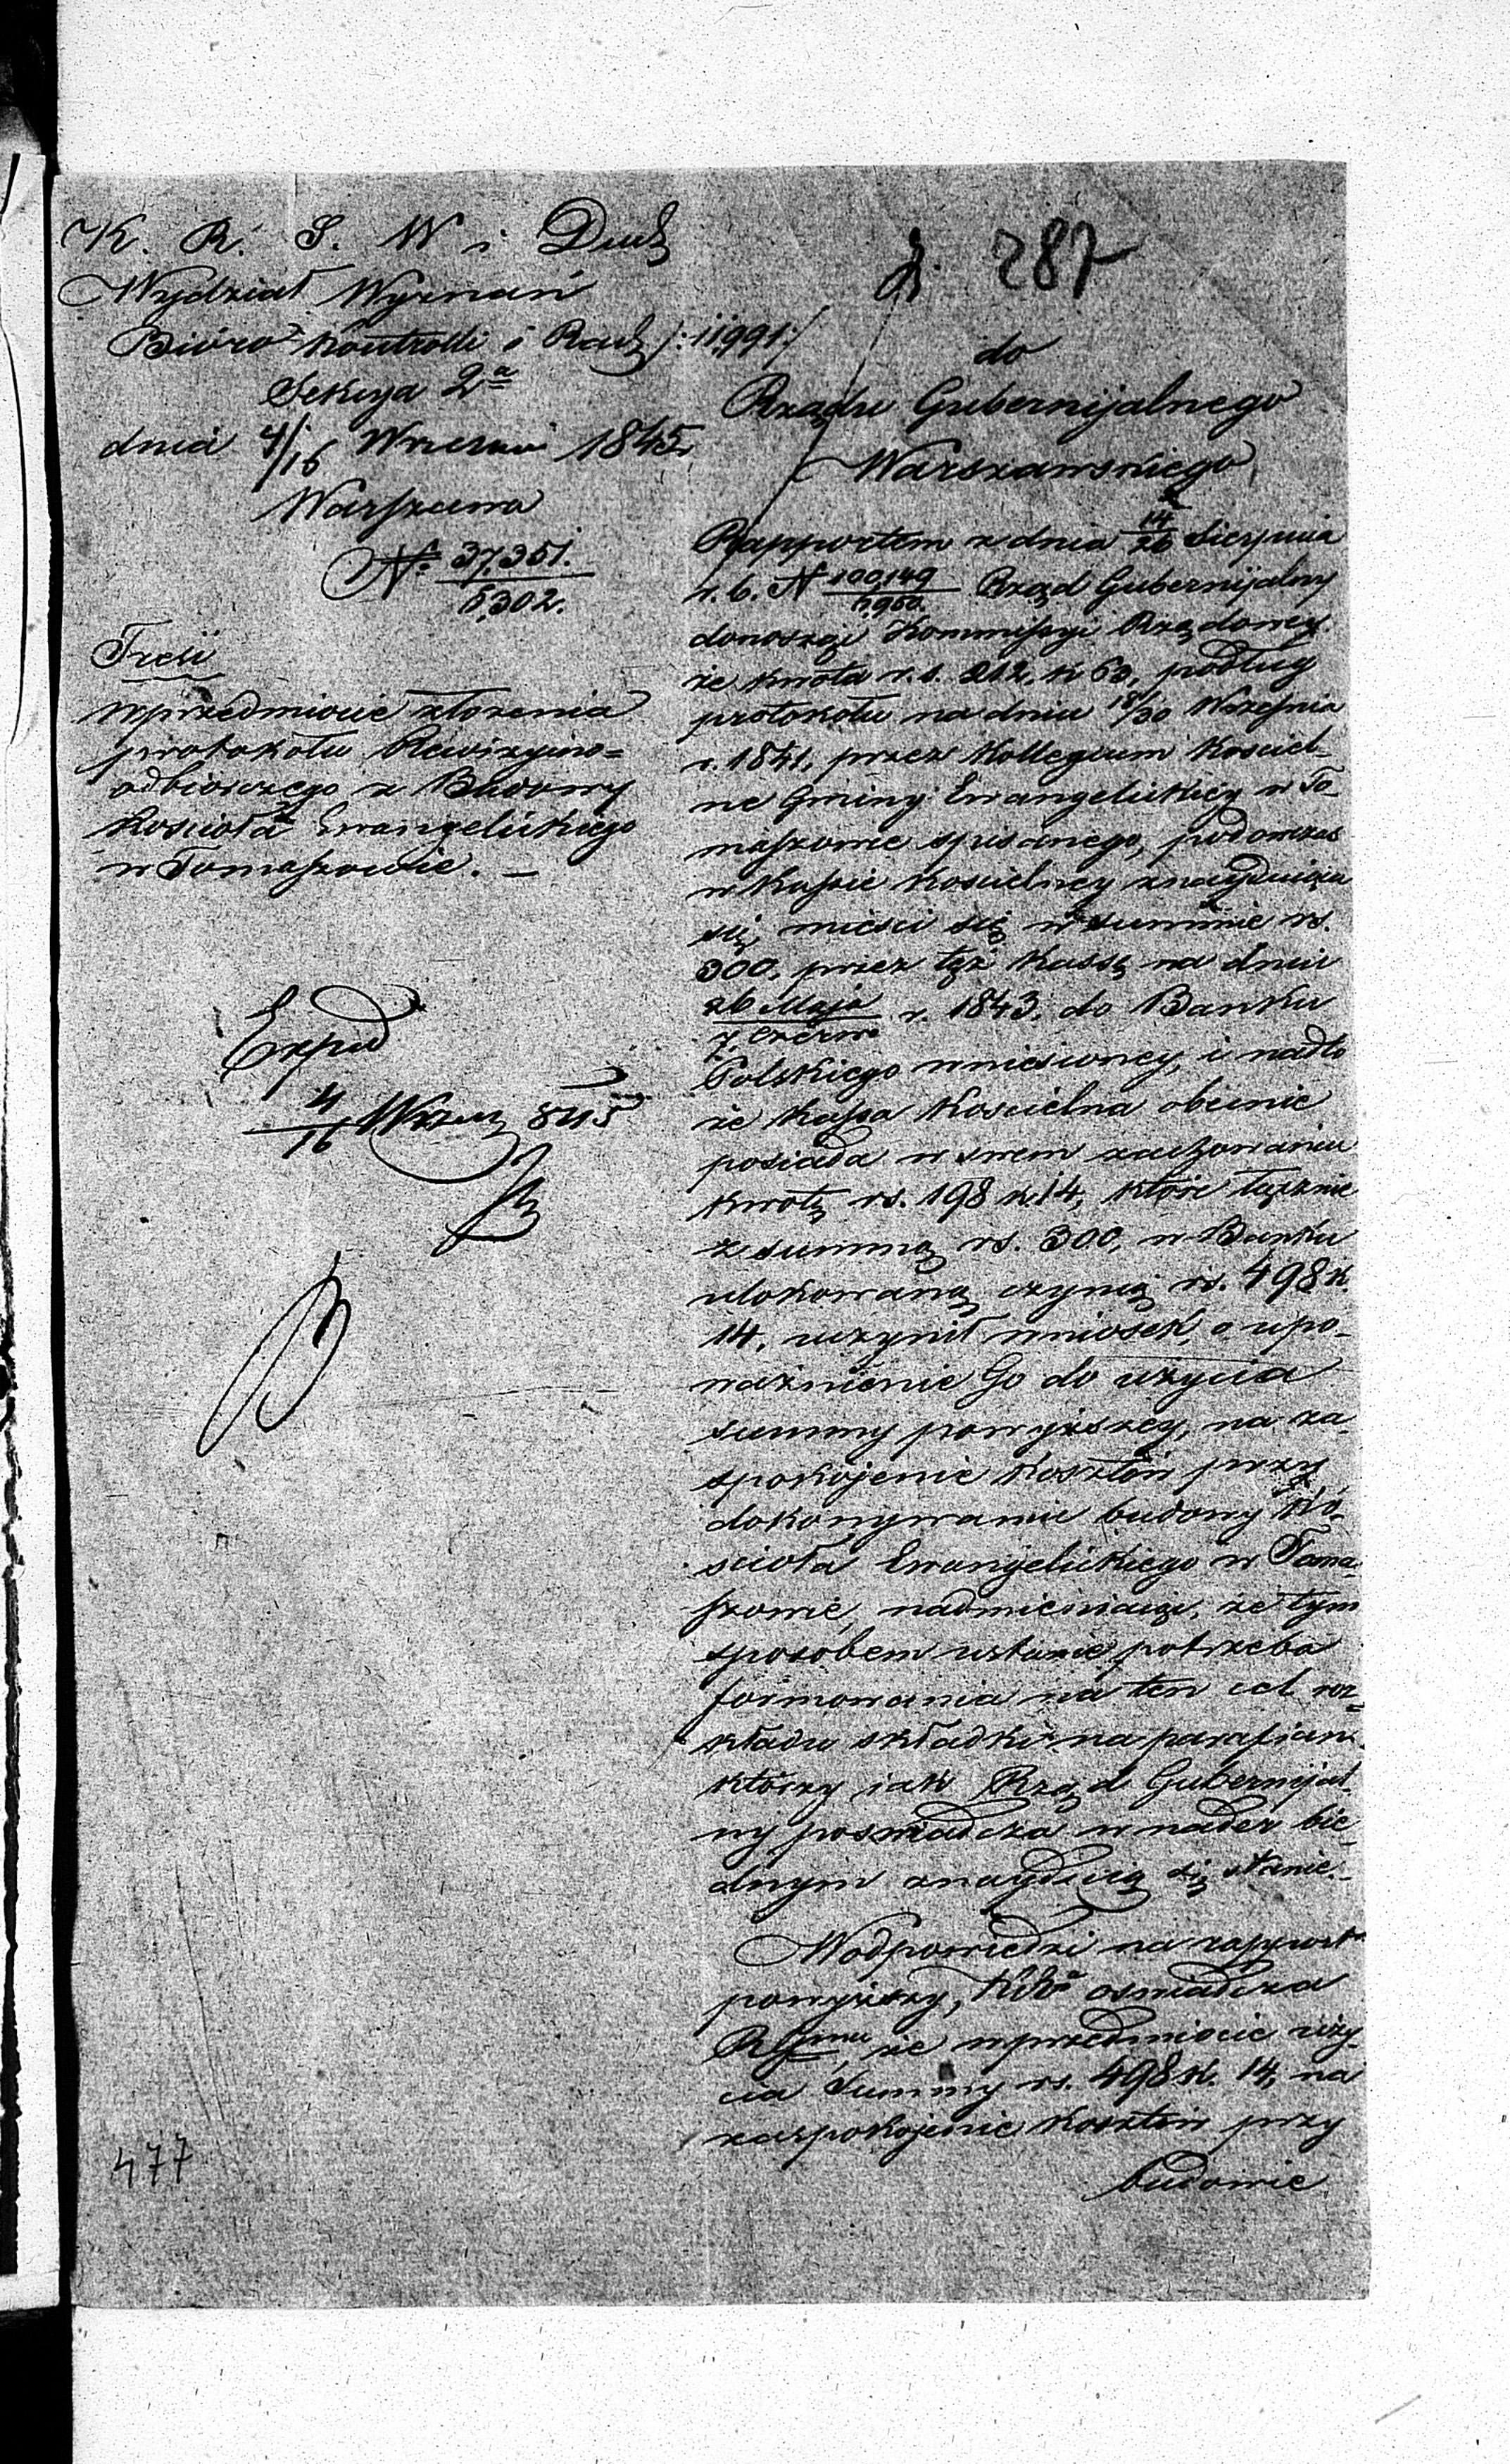 K. R. S. W i Duch
Wydział Wyznań
Biuro Kontrolli i Rach /:11991:/
Sekcya 2a
dnia 4/16 Wrzesnia 1845
Warszawa
No 37,351.
5,302.
Treść
w przedmiocie złożenia
protokołu Rewizyjno=
odbiorczego z Budowy
Kościoła Ewangelickiego
w Tomaszowie. —
Exped
4/16 Wrzes 845
477
287
do
Rządu Gubernijalnego
Warszawskiego
Rapportem z dnia 14/26 Sierpnia
r. b. N 100,149 Rząd Gubernijalny
donosząc Kommissyi Rządowey
że kwota r. s. 212, k 60, podług
protokołu na dniu 18/30 Września
r. 1841, przez Kollegium Kościel-
ne Gminy Ewangelickiey w To-
maszowie spisanego, podowczas
w Kassie Kościelney znayduiąca
się, mieści się w summie rs.
300, przez tęż Kassę na dniu
26 Maja / 7 Czerwa r. 1843. do Banku
Polskiego wniesioney, i nadto
że Kassa Kościelna obecnie
posiada w swem zachowaniu
kwotę rs. 198 k. 14, które łącznie
z summą rs. 300, w Banku
ulokowaną czynią rs. 498 k.
14, uczynił wniosek, o upo-
ważnienie Go do użycia
summy powyższey, na za-
spokojenie kosztów przy
dokonywaniu budowy Ko-
ścioła Ewangelickiego w Toma-
szowie, nadmieniając, że tym
sposobem ustanie potrzeba
formowania na ten cel roz-
kładu składki na parafian
którzy jak Rząd Gubernijal-
ny poświadcza w nader bie-
dnym znayduią się stanie.
W odpowiedzi na rapport
powyższy, KRa oświadcza
RGmu, że w przedmiocie uży-
cia Summy rs. 498 k. 14, na
zaspokojenie kosztów przy
budowie